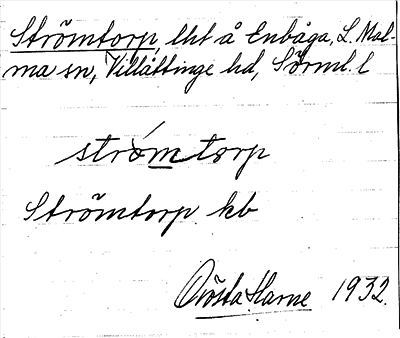 Strömtorp, lht å Enbåga, L. Mal-
ma sn, Villåttinge hd, Sörml. l
strómtorp
Strömtorp kb
Harne 1932.